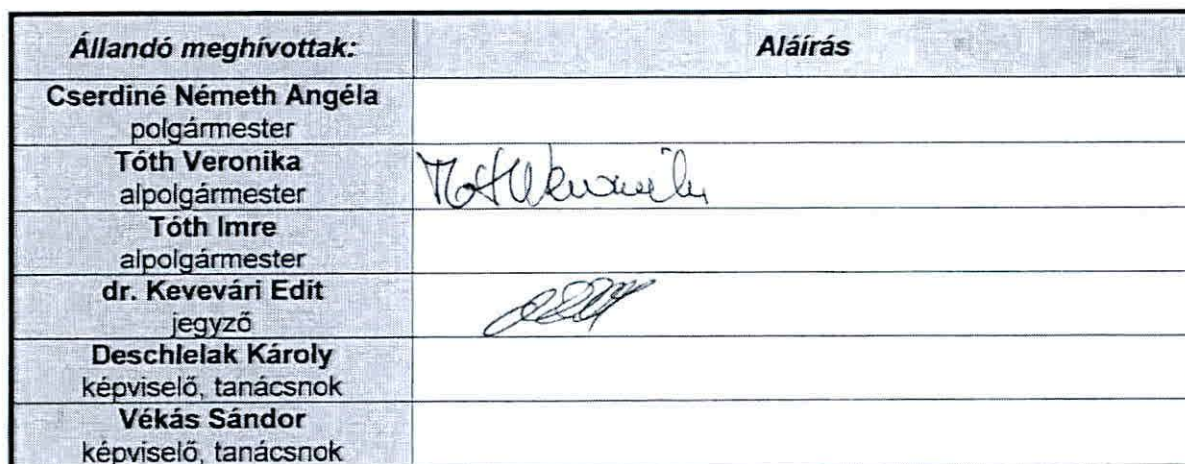 Állandó meghívottak: Aláírás
Cserdiné Németh Angéla
polgármester
Tóth Veronika
alpolgármester
Tóth Veronika
Tóth Imre
alpolgármester
dr. Kevevári Edit
jegyző
Deschlelak Károly
képviselő, tanácsnok
Vékás Sándor
képviselő, tanácsnok